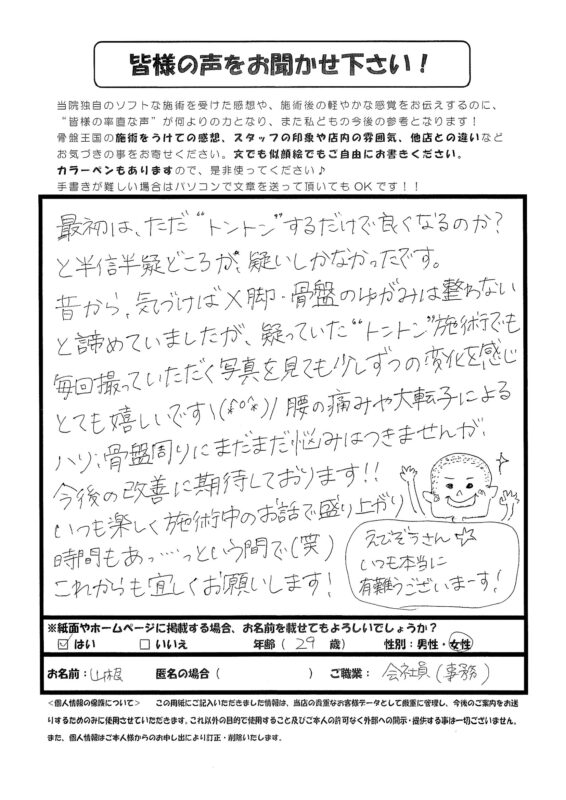 皆様の声をお聞かせ下さい！
当院独自のソフトな施術を受けた感想や、施術後の軽やかな感覚をお伝えするのに、
“皆様の率直な声”が何よりの力となり、また私どもの今後の参考となります！
骨盤王国の施術をうけての感想、スタッフの印象や店内の雰囲気、他店との違いなど
お気づきの事をお寄せください。文でも似顔絵でもご自由にお書きください。
カラーペンもありますので、是非使ってください♪
手書きが難しい場合はパソコンで文章を送って頂いてもOKです！！
最初は、ただ“トントン”するだけで良くなるのか？
と半信半疑どころか、疑いしかなかったです。
昔から、気づけばX脚・骨盤のゆがみは整わない
と諦めていましたが、疑っていた“トントン”施術でも
毎回撮っていただく写真を見ても少しずつの変化を感じ
とても嬉しいです\(^o^)/ 腰の痛みや大転子による
ハリ、骨盤周りにまだまだ悩みはつきませんが、
今後の改善に期待しております！！
いつも楽しく施術中のお話で盛り上がり
時間もあっ……っという間で(笑)
これからも宜しくお願いします！
えびぞうさん☆
いつも本当に
有難うございまーす！
※紙面やホームページに掲載する場合、お名前を載せてもよろしいでしょうか？
☑はい　□いいえ　年齢（29 歳）　性別：男性・女性
お名前：山根　匿名の場合（　　　）　ご職業：会社員(事務)
＜個人情報の保護について＞　この用紙にご記入いただきました情報は、当店の貴重なお客様データとして厳重に管理し、今後のご案内をお送
りするためのみに使用させていただきます。これ以外の目的で使用すること及びご本人の許可なく外部への開示・提供する事は一切ございません。
また、個人情報はご本人様からのお申し出により訂正・削除いたします。